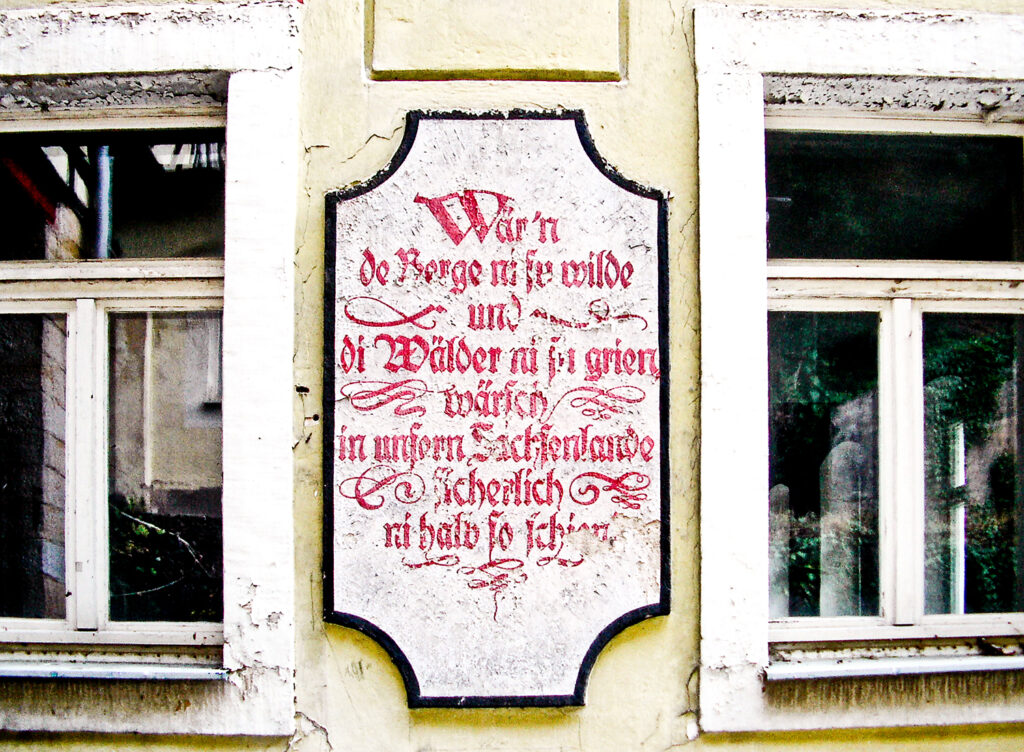 Wär'n
de Berge ni so wilde
und
di Wälder ni so grien,
wärsch
in unsern Sachsenlande
sicherlich
ni halb so schien.